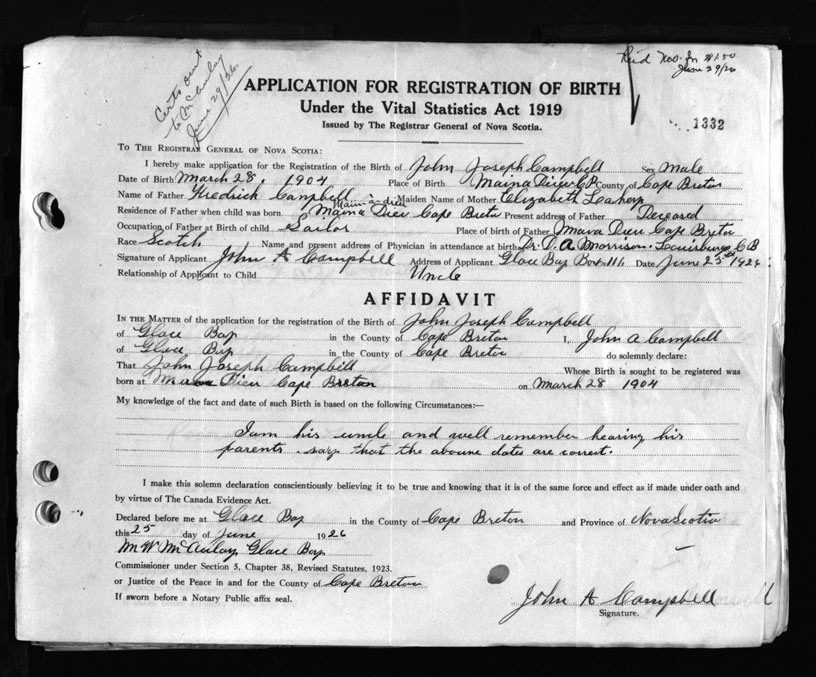 Certs sent
to McAulay
June 29/26.
Rec'd Nov. In $1.50
June 29/26
1332
APPLICATION FOR REGISTRATION OF BIRTH
Under the Vital Statistics Act 1919
Issued by The Registrar General of Nova Scotia.
TO THE REGISTRAR GENERAL OF NOVA SCOTIA:
I hereby make application for the Registration of the Birth of John Joseph Campbell Sex Male
Date of Birth March 28, 1904 Place of Birth Main a Dieu C.B County of Cape Breton
Name of Father Fredrick Campbell Maiden Name of Mother Elizabeth Leahey
Main-a-dieu
Residence of Father when child was born Main a Dieu Cape Breton Present address of Father Deceased
Occupation of Father at Birth of child Sailor Place of birth of Father Mava Dieu Cape Breton
Race Scotch Name and present address of Physician in attendance at birth Dr. D. A Morrison. Louisburg C B
Signature of Applicant John A Campbell Address of Applicant Glace Bay Box 111. Date June 25st 1926.
Relationship of Applicant to Child Uncle
AFFIDAVIT
IN THE MATTER of the application for the registration of the Birth of John Joseph Campbell
of Glace Bay in the County of Cape Breton I, John A Campbell
of Glace Bay in the County of Cape Breton do solemnly declare:
That John Joseph Campbell Whose Birth is sought to be registered was
born at Dieu Cape Breton on March 28 1904
My knowledge of the fact and date of such Birth is based on the following Circumstances:—
I am his uncle and well remember hearing his
parents. say that the aboune dates are correct.
I make this solemn declaration conscientiously believing it to be true and knowing that it is of the same force and effect as if made under oath and
by virtue of The Canada Evidence Act.
Declared before me at Glace Bay in the County of Cape Breton and Province of Nova Scotia
this 25 day of June 1926
M W McAulay, Glace Bay
Commissioner under Section 5, Chapter 38, Revised Statutes, 1923.
or Justice of the Peace in and for the County of Cape Breton
If sworn before a Notary Public affix seal.
John A Campbell
Signature.